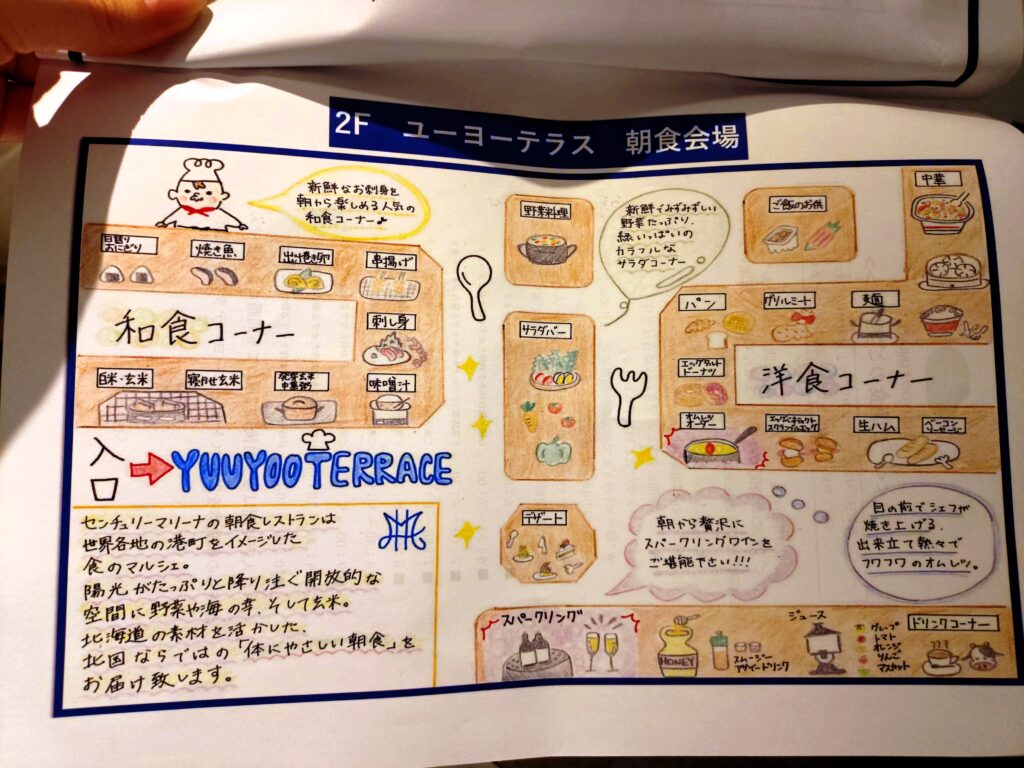 2F ユーヨーテラス 朝食会場
新鮮なお刺身を
朝から楽しめる人気の
和食コーナー♪
目張り
おにぎり
焼き魚
出汁巻き卵
串揚げ
和食コーナー
刺し身
白米・玄米
寝かせ玄米
発芽玄米
中華粥
味噌汁
入口
YUUYOO TERRACE
センチュリーマリーナの朝食レストランは
世界各地の港町をイメージした
食のマルシェ。
陽光がたっぷりと降り注ぐ開放的な
空間に野菜や海の幸、そして玄米。
北海道の素材を活かした、
北国ならではの「体にやさしい朝食」を
お届け致します。
野菜料理
新鮮でみずみずしい
野菜たっぷり
緑いっぱいの
カラフルな
サラダコーナー
サラダバー
デザート
ご飯のお供
中華
パン
グリルミート
麺
エッグタルト
ドーナツ
洋食コーナー
オムレツ
オーダー
エッグベネディクト
スクランブルエッグ
生ハム
ベーコン
ソーセージ
朝から贅沢に
スパークリングワインを
ご堪能下さい!!!
目の前でシェフが
焼き上げる、
出来立て熱々で
フワフワのオムレツ。
スパークリング
HONEY
スムージー
アサイードリンク
ジュース
グレープ
トマト
オレンジ
りんご
マスカット
ドリンクコーナー